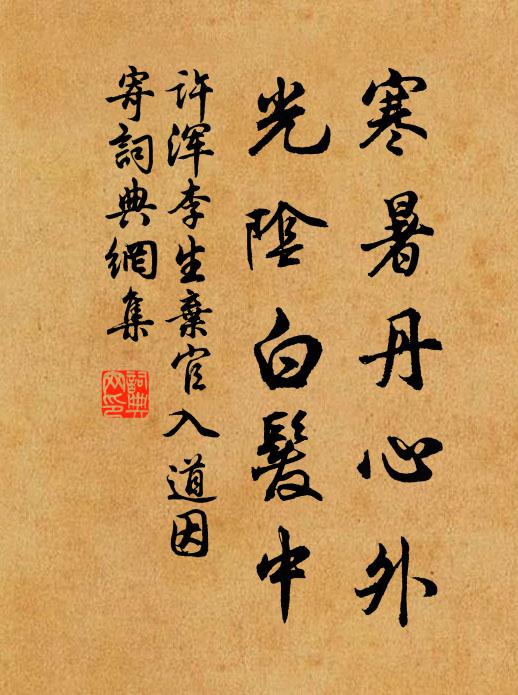 寒暑丹心外
光陰白髮中
许渾李生棄官入道因
寄詞典網集
詞典
網印